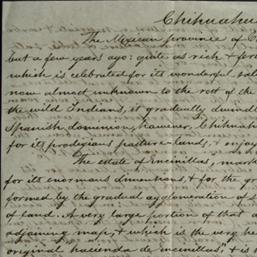 Chihuahua
The Mexican province of C
but a few years ago; quite as rich & fer
which is celebrated for its wonderful
now almost unknown to the rest of the
the wild Indians, it gradually dwindl
Spanish dominion, however, Chihuah
for its prodigious pasture-lands, & enjoy
The estate of encinillas, mark
for its enormous dimensions, & for the p
formed by the gradual agglomeration of
of land. A very large portion of that
adjoining map, & which is the very
original hacienda de encinillas, & is